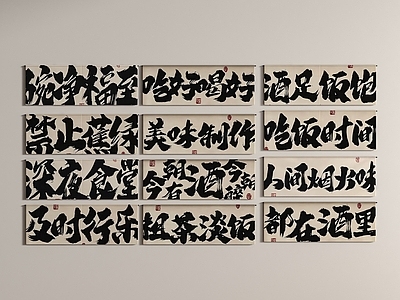 碗净福至
吃好喝好
酒足饭饱
禁止蕉绿
美味制作
吃饭时间
深夜食堂
今朝有酒今朝醉
人间烟火味
及时行乐
粗茶淡饭
都在酒里